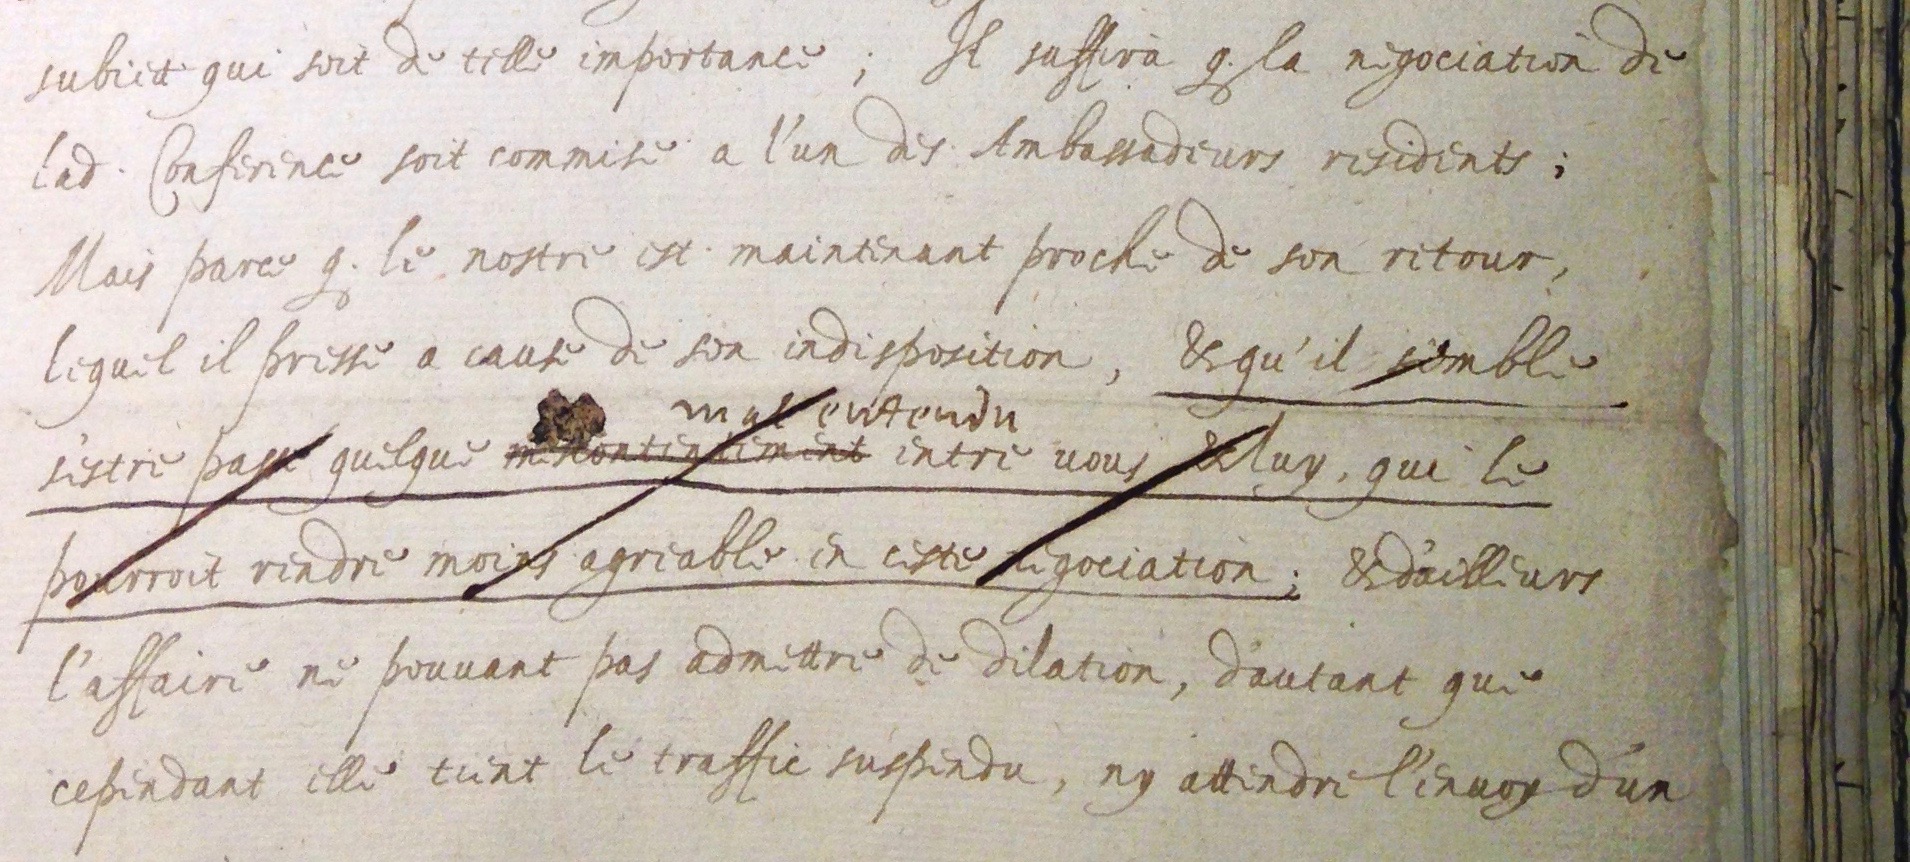 subiect qui soit de telle importance ; Il suffira q. la negociation de
lad. Conference soit commise a l'un des Ambassadeurs residents ;
Mais parce q. le nostre est maintenant proche de son retour,
lequel il presse a cause de son indisposition, & qu'il semble
mal entendu
s'estre passé quelque mescontentement entre vous & luy, qui le
pourroit rendre moins agreable en ceste negociation ; & d'ailleurs
l'affaire ne pouuant pas admettre de dilation, d'autant que
cependant elle tient le traffic suspendu, ny attendre l'enuoy d'un